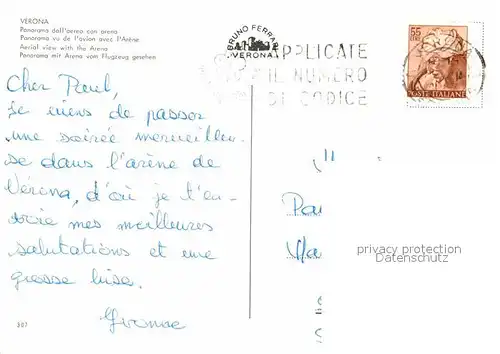 VERONA
Panorama dall'aereo con arena
Panorama vu de l'avion avec l'Arène
Aerial view with the Arena
Panorama mit Arena vom Flugzeug gesehen
BRUNO FERRARI
VERONA
APPLICATE
IL NUMERO
DI CODICE
55
POSTE ITALIANE
Cher Paul,
je viens de passer
une soirée merveilleu-
se dans l'arène de
Vérona, d'où je t'en-
voie mes meilleures
salutations et une
grosse bise.
Yvonne
privacy protection
Datenschutz
507